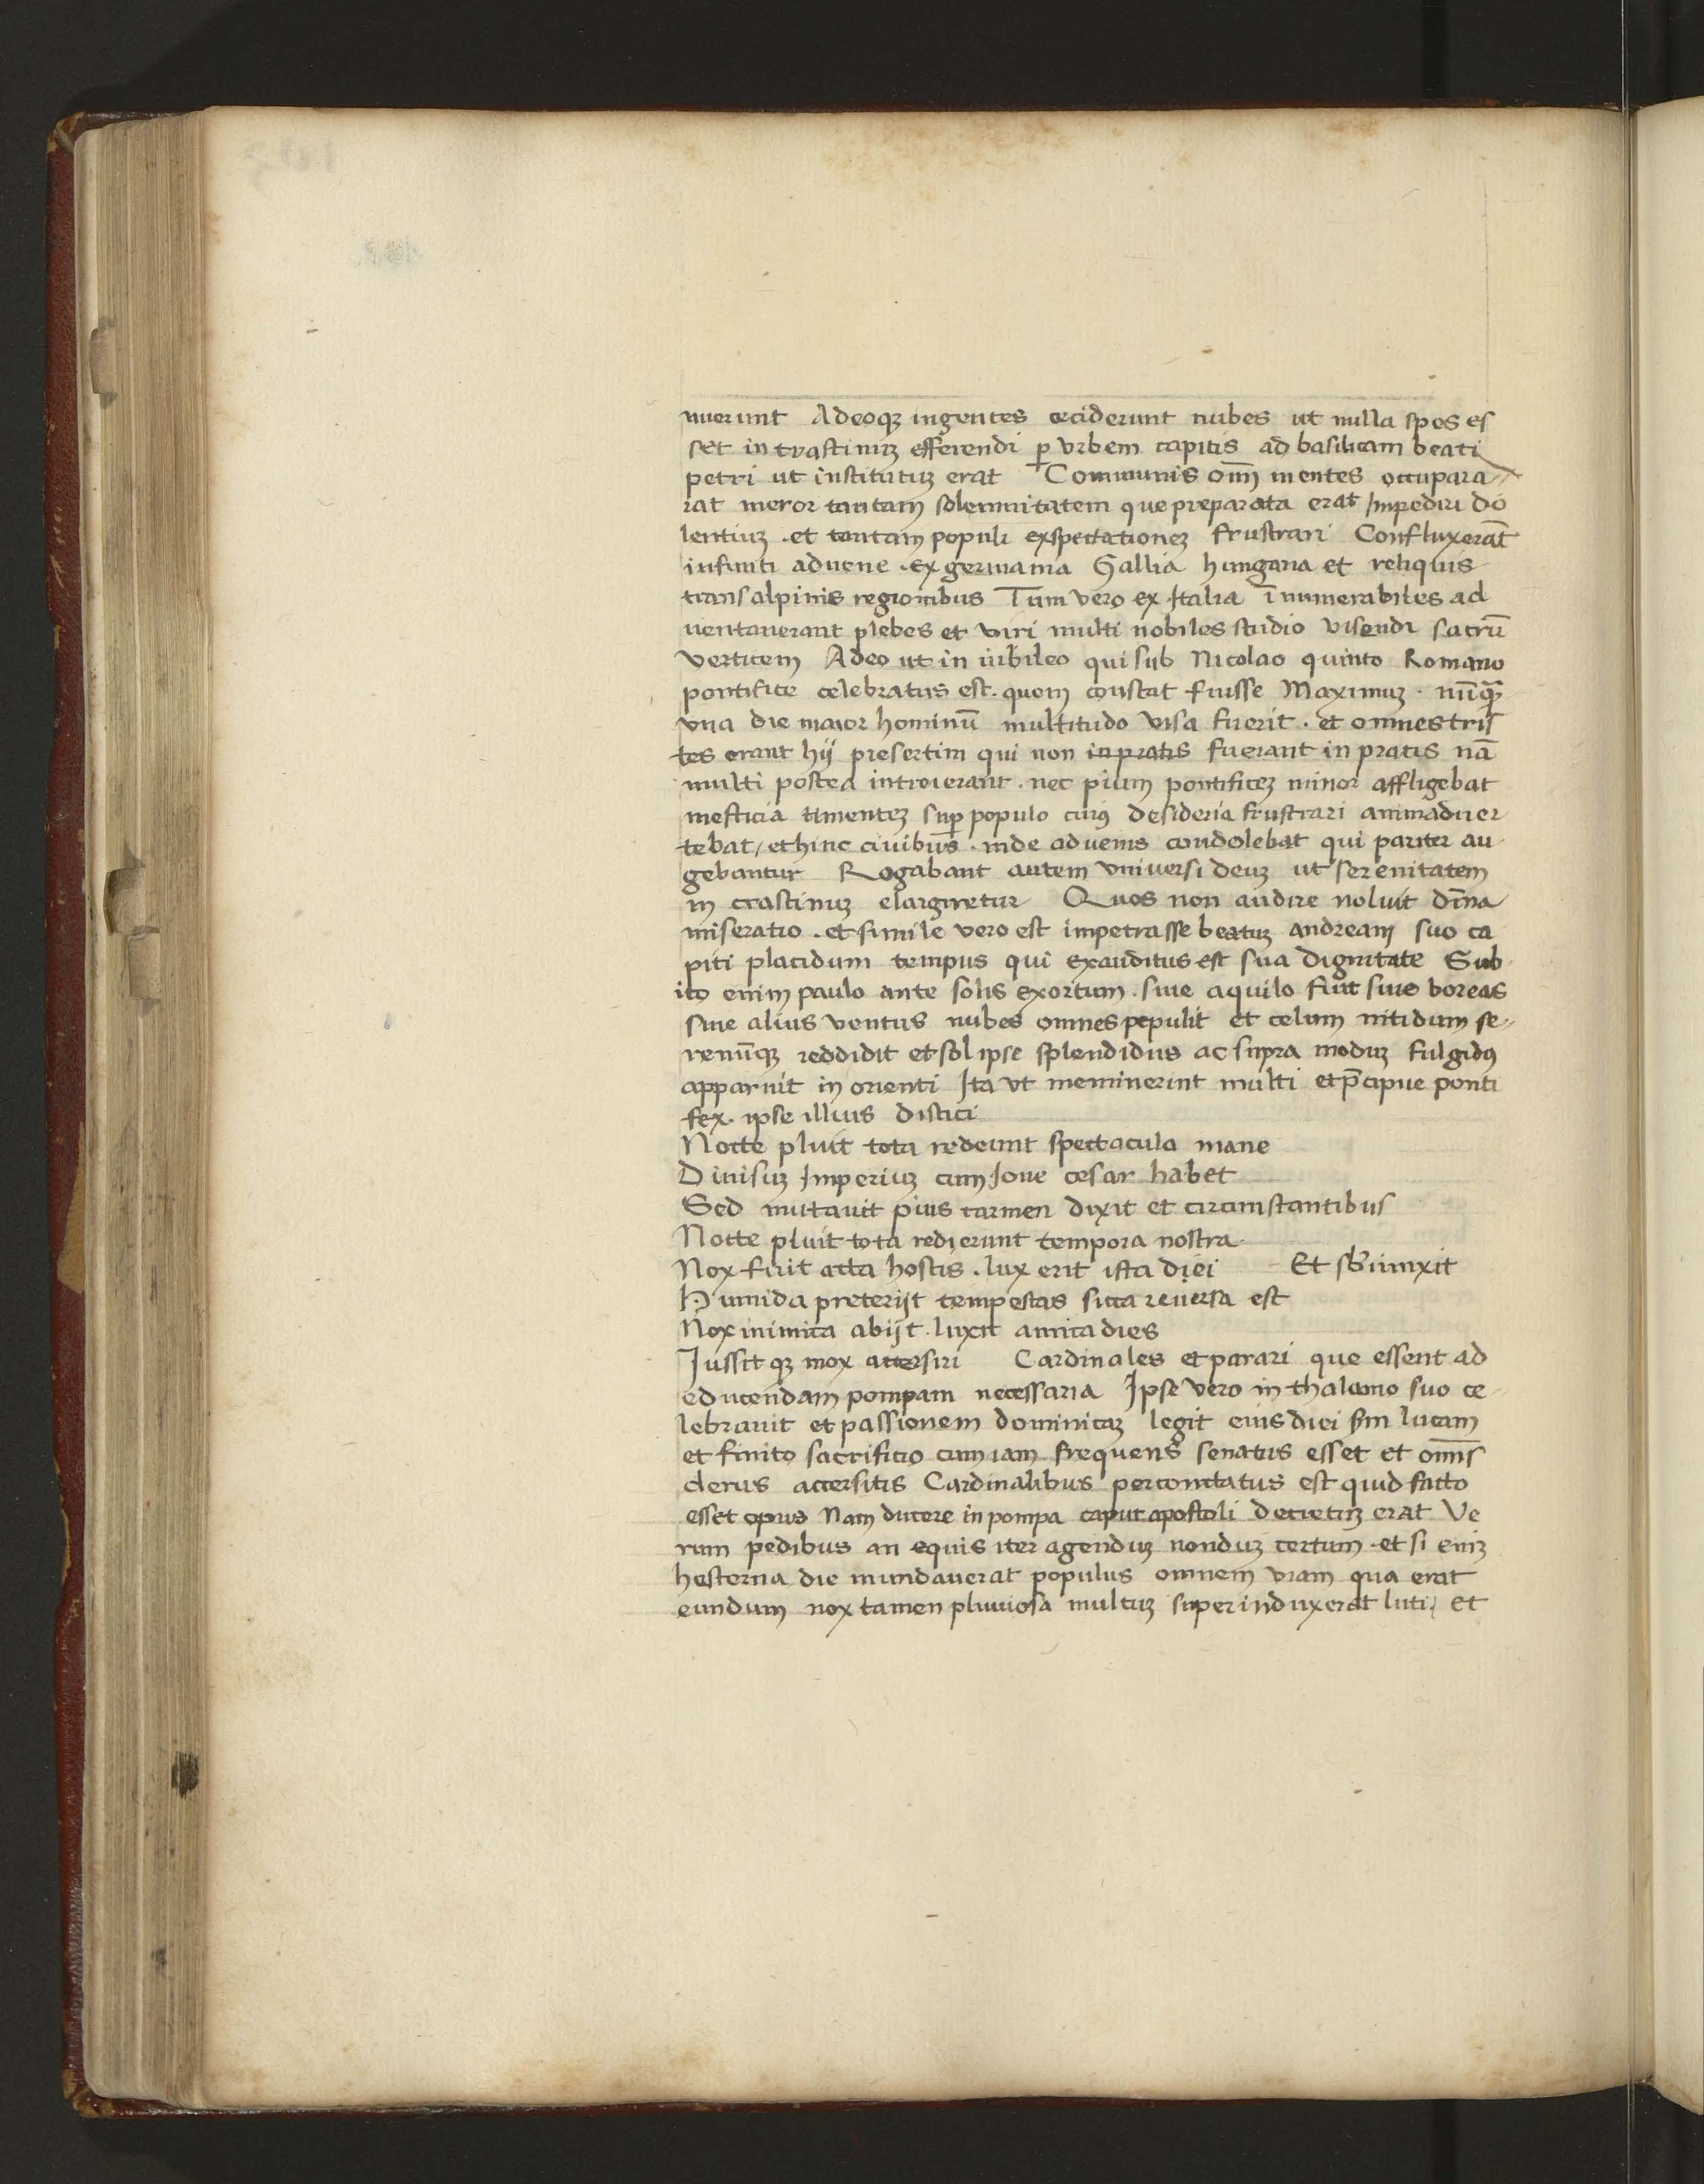 nuerunt Adeoqꝫ ingentes ceciderunt nubes ut nulla spes es
set in crastinuꝫ efferendi ꝑ vrbem capitis ad basilicam beati
petri ut institutuꝫ erat Communis om̄ mentes occupara
rat meror tantam solemnitatem que preparata erat Impediri do
lentiuꝫ . et tantam populi exspectationeꝫ frustrari Confluxerāt
infiniti aduene . ex germania Gallia hungaria et reliquis
transalpinis regionibus Tum vero ex Italia īnumerabiles ad
uentauerant plebes et viri multi nobiles studio visendi sacrū
verticem Adeo ut in iubileo qui sub Nicolao quinto Romano
pontifice celebratus est . quem constat fuisse Maximuꝫ . nūqꝫ
vna die maior hominū multitudo visa fuerit . et omnes tris
tes erant hij presertim qui non in pratis fuerant in pratis nā
multi postea introierant . nec pium pontificeꝫ minor affligebat
mesticia timenteꝫ suꝑ populo cuiꝰ desideria frustrari animaduer
tebat / et hinc ciuibus . inde aduenis condolebat qui pariter au
gebantur Rogabant autem vniuersi deuꝫ ut serenitatem
in crastinuꝫ elargiretur Quos non audire noluit dīna
miseratio . et simile vero est impetrasse beatuꝫ andream suo ca
piti placidum tempus qui exauditus est sua dignitate Sub
ito enim paulo ante solis exortum . siue aquilo fuit siue boreas
siue alius ventus nubes omnes pepulit et celum nitidum se
renūqꝫ reddidit et sol ipse splendidus ac supra moduꝫ fulgidꝰ
apparuit in orienti Ita vt meminerint multi et p̄cipue ponti
fex . ipse illius distici
Nocte pluit tota redeunt spectacula mane
Diuisuꝫ Imperiuꝫ cum Ioue cesar habet
Sed mutauit pius carmen dixit et circumstantibus
Nocte pluit tota redierunt tempora nostra
Nox fuit acta hostis . lux erit ista diei Et sb̄iunxit
Humida preterijt tempestas sicca reuersa est
Nox inimica abijt . luxit amica dies
Iussit qꝫ mox accersiri Cardinales et parari que essent ad
educendam pompam necessaria Ipse vero in thalamo suo ce
lebrauit et passionem dominicaꝫ legit eius diei scd̄m lucam
et finito sacrificio cum iam frequens senatus esset et om̄is
clerus accersitis Cardinalibus percontatus est quid facto
esset opus Nam ducere in pompa caput apostoli decretuꝫ erat Ve
rum pedibus an equis iter agenduꝫ nonduꝫ certum . et si eniꝫ
hesterna die mundauerat populus omnem viam qua erat
eundum nox tamen pluuiosa multuꝫ superinduxerat luti / et